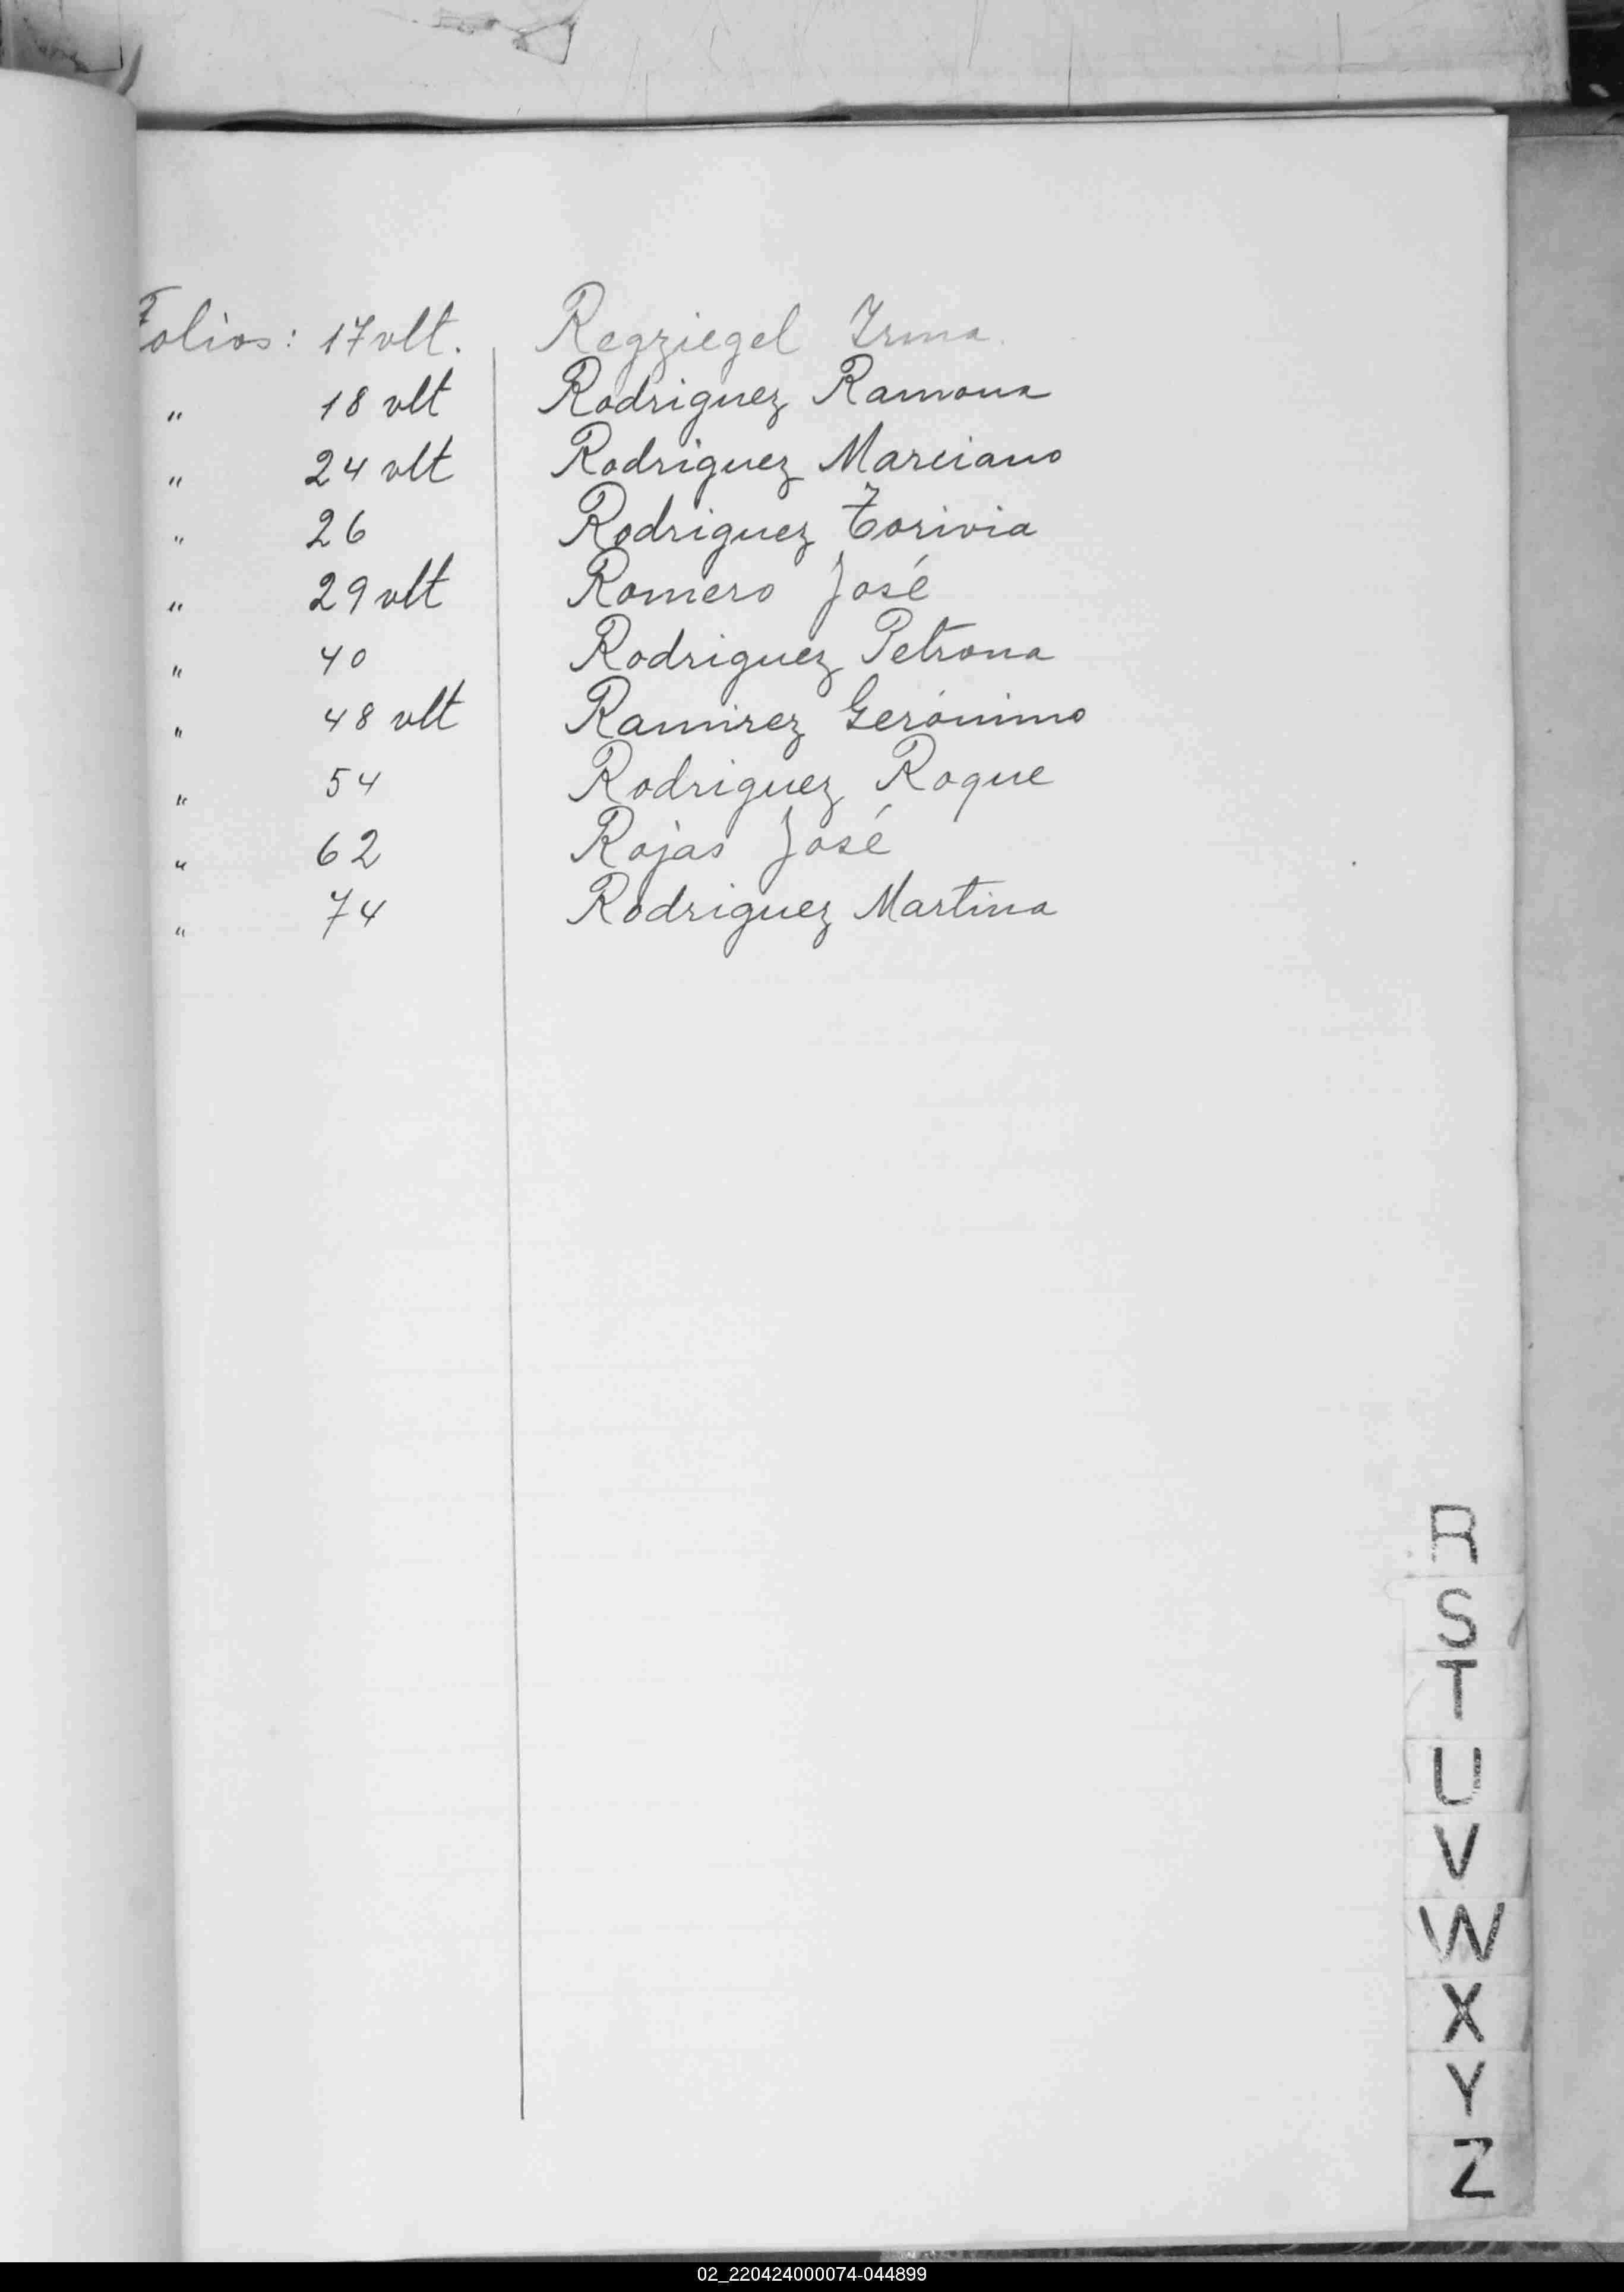 Folios: 17 vlt. Regziegel Irma.
" 18 vlt Rodriguez Ramona
" 24 vlt Rodriguez Marciano
" 26 Rodriguez Torivia
" 29 vlt Romero José
" 40 Rodriguez Petrona
" 48 vlt Ramirez Gerónimo
" 54 Rodriguez Roque
" 62 Rojas José
" 74 Rodriguez Martina
R
S
T
U
V
W
X
Y
Z
02_220424000074-044899